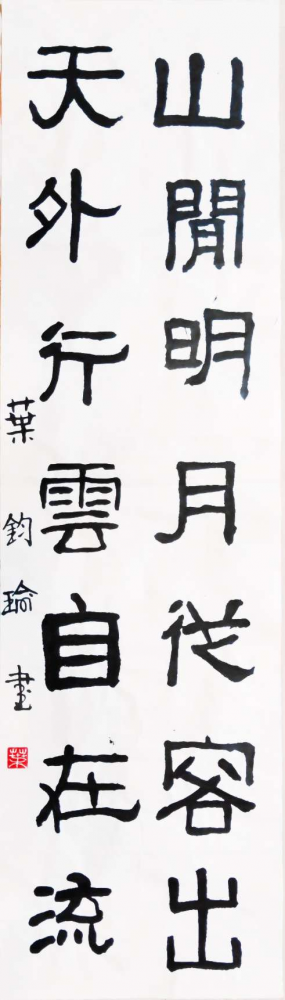 山閒明月從容出
天外行雲自在流
葉鈞瑜書
葉